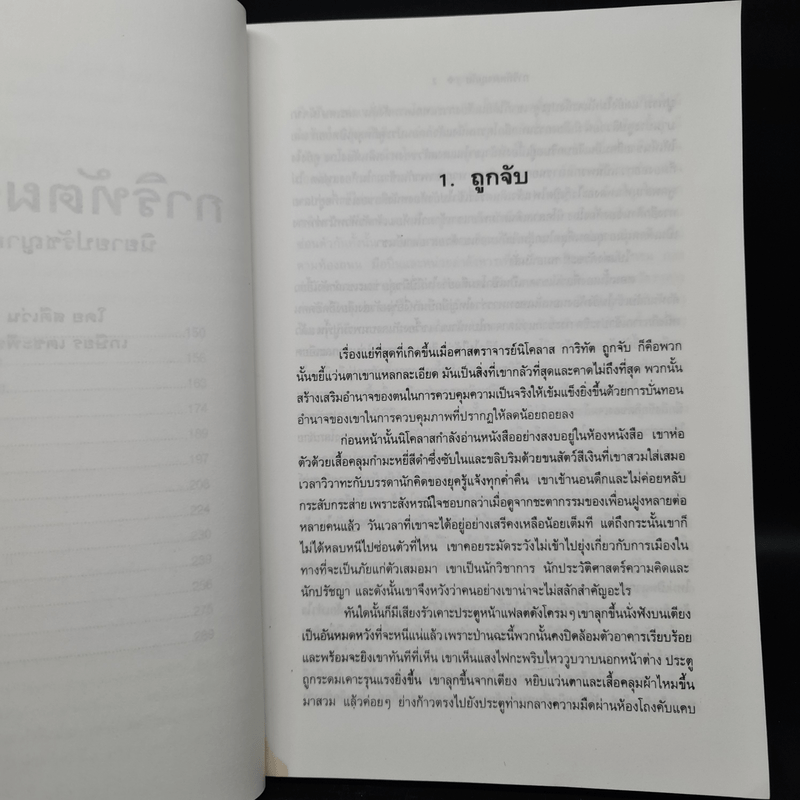 การิทัตผ
นิยายปรัชญา
โดย สตีเว่น
เกษียร เตชะพี
1. ถูกจับ
เรื่องแย่ที่สุดที่เกิดขึ้นเมื่อศาสตราจารย์นิโคลาส การิทัต ถูกจับ ก็คือพวก
นั้นขยี้แว่นตาเขาแหลกละเอียด มันเป็นสิ่งที่เขากลัวที่สุดและคาดไม่ถึงที่สุด พวกนั้น
สร้างเสริมอำนาจของตนในการควบคุมความเป็นจริงให้เข้มแข็งยิ่งขึ้นด้วยการบั่นทอน
อำนาจของเขาในการควบคุมภาพที่ปรากฏให้ลดน้อยถอยลง
ก่อนหน้านั้นนิโคลาสกำลังอ่านหนังสืออย่างสงบอยู่ในห้องหนังสือ เขาห่อ
ตัวด้วยเสื้อคลุมกำมะหยี่สีดำซึ่งซับในและขลิบริมด้วยขนสัตว์สีเงินที่เขาสวมใส่เสมอ
เวลาวิวาทะกับบรรดานักคิดของยุครู้แจ้งทุกค่ำคืน เขาเข้านอนดึกและไม่ค่อยหลับ
กระสับกระส่าย เพราะสังหรณ์ใจชอบกลว่าเมื่อดูจากชะตากรรมของเพื่อนฝูงหลายต่อ
หลายคนแล้ว วันเวลาที่เขาจะได้อยู่อย่างเสรีคงเหลือน้อยเต็มที แต่ถึงกระนั้นเขาก็
ไม่ได้หลบหนีไปซ่อนตัวที่ไหน เขาคอยระมัดระวังไม่เข้าไปยุ่งเกี่ยวกับการเมืองใน
ทางที่จะเป็นภัยแก่ตัวเสมอมา เขาเป็นนักวิชาการ นักประวัติศาสตร์ความคิดและ
นักปรัชญา และดังนั้นเขาจึงหวังว่าคนอย่างเขาน่าจะไม่สลักสำคัญอะไร
ทันใดนั้นก็มีเสียงรัวเคาะประตูหน้าแฟลตดังโครมๆ เขาลุกขึ้นนั่งฟังบนเตียง
เป็นอันหมดหวังที่จะหนีแน่แล้ว เพราะป่านฉะนี้พวกนั้นคงปิดล้อมตัวอาคารเรียบร้อย
และพร้อมจะยิงเขาทันทีที่เห็น เขาเห็นแสงไฟกะพริบไหววูบวาบนอกหน้าต่าง ประตู
ถูกระดมเคาะรุนแรงยิ่งขึ้น เขาลุกขึ้นจากเตียง หยิบแว่นตาและเสื้อคลุมผ้าไหมขึ้น
มาสวม แล้วค่อยๆ ย่างก้าวตรงไปยังประตูท่ามกลางความมืดผ่านห้องโถงคับแคบ